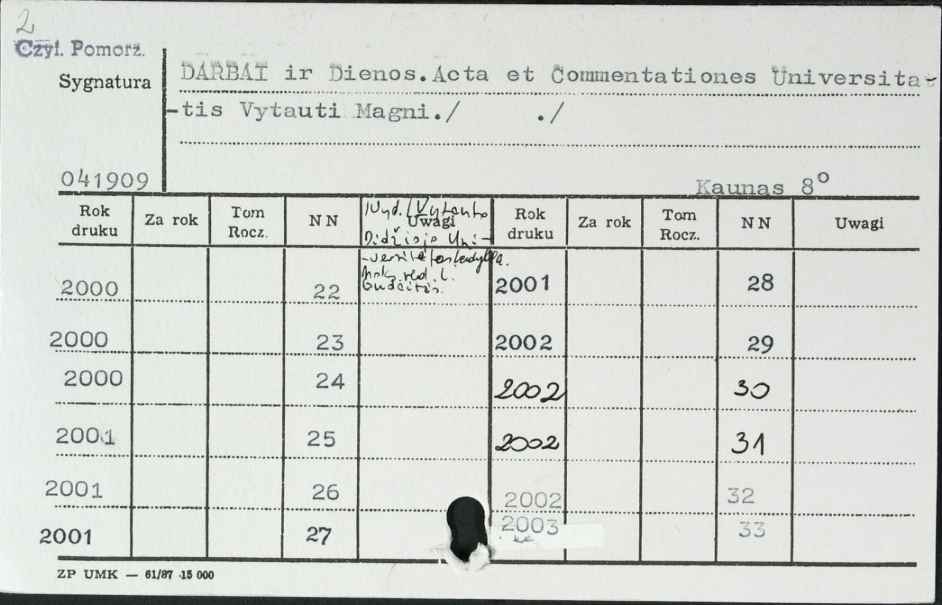 2
Czyt. Pomorz.
Sygnatura
DARBAI ir Dienos.Acta et Commentationes Universita-
-tis Vytauti Magni./ ./
041909
Kaunas 8°
Rok druku Za rok Tom Rocz. N N Uwagi Rok druku Za rok Tom Rocz. N N Uwagi
Wyd. /Vytauto
Didžiojo Uni-
red. L.
2000 22 2001 28
2000 23 2002 29
2000 24 2002 30
2001 25 2002 31
2001 26 2002 32
2001 27 2003 33
ZP UMK — 61/87 15 000